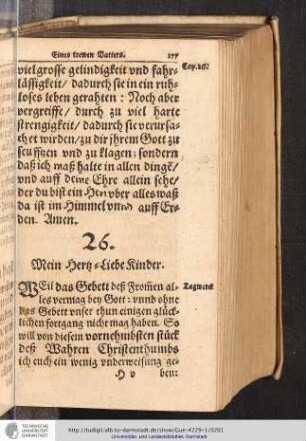 Eines trewen Vatters. 177
viel grosse gelindigkeit vnd fahr- Cap. 26.
lässigkeit/ dadurch sie in ein ruch-
loses leben gerahten: Noch aber
vergreiffe/ durch zu viel harte
strengigkeit/ dadurch sie verursa-
chet wirden/ zu dir jhrem Gott zu
seufftzen vnd zu klagen; sondern
daß ich maß halte in allen dingē/
vnd auff deine Ehre allein sehe/
der du bist ein Herr vber alles waß
da ist im Himmel vnnd auff Er-
den. Amen.
26.
Mein Hertz-Liebe Kinder.
WEil das Gebett deß Frommen al- Tagwerck
les vermag bey Gott: vnnd ohne
das Gebett vnser thun einigen glück-
lichen fortgang nicht mag haben. So
will von diesem vornehmbsten stück
deß Wahren Christenthumbs
ich euch ein wenig vnderweisung ge-
H v ben:
TECHNISCHE
UNIVERSITÄT
DARMSTADT
http://tudigit.ulb.tu-darmstadt.de/show/Gue-4229-1/0201
Universitäts- und Landesbibliothek Darmstadt